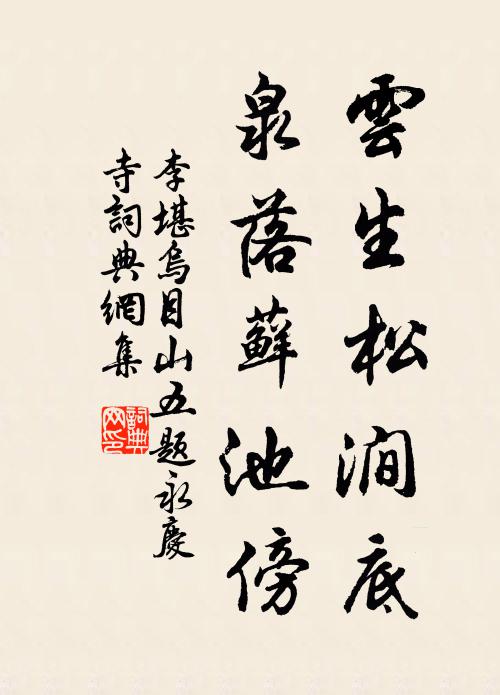 雲生松澗底
泉落蘚池傍
李堪烏目山五題永慶
寺詞典網集
詞典
网印